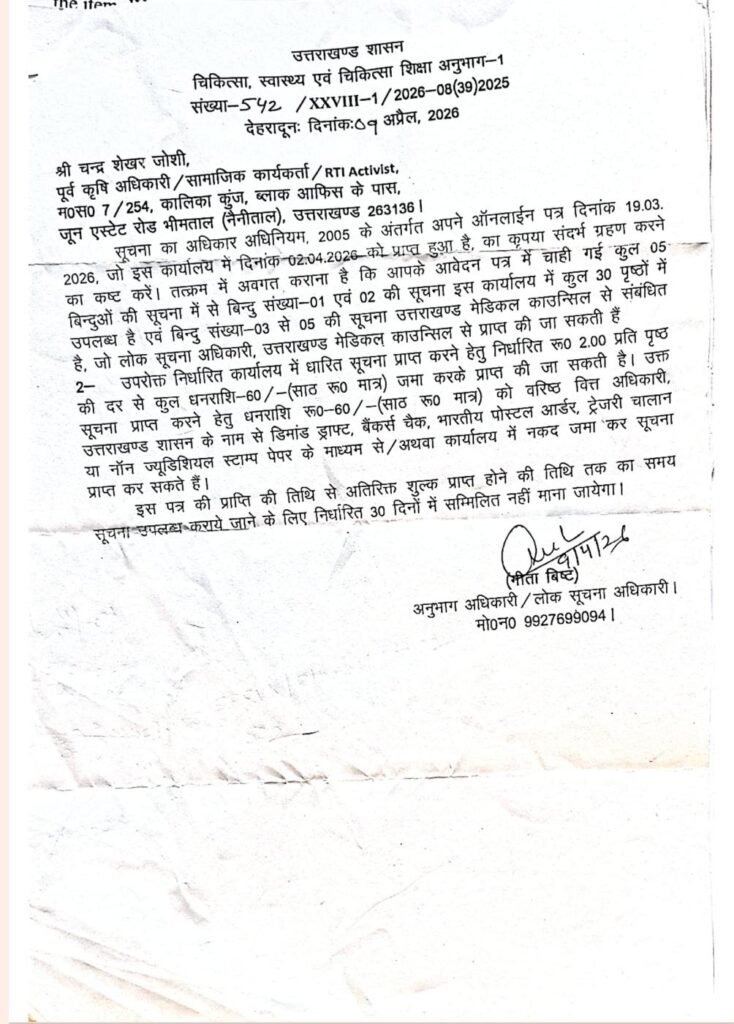 the item
उत्तराखण्ड शासन
चिकित्सा, स्वास्थ्य एवं चिकित्सा शिक्षा अनुभाग-1
संख्या-542 /XXVIII-1/2026-08(39)2025
देहरादूनः दिनांकः09 अप्रैल, 2026
श्री चन्द्र शेखर जोशी,
पूर्व कृषि अधिकारी/सामाजिक कार्यकर्ता/RTI Activist,
म0स0 7/254, कालिका कुंज, ब्लाक आफिस के पास,
जून एस्टेट रोड भीमताल (नैनीताल), उत्तराखण्ड 263136।
सूचना का अधिकार अधिनियम, 2005 के अंतर्गत अपने ऑनलाईन पत्र दिनांक 19.03.
2026, जो इस कार्यालय में दिनांक-02.04.2026 को प्राप्त हुआ है, का कृपया संदर्भ ग्रहण करने
का कष्ट करें। तत्क्रम में अवगत कराना है कि आपके आवेदन पत्र में चाही गई कुल 05
बिन्दुओं की सूचना में से बिन्दु संख्या-01 एवं 02 की सूचना इस कार्यालय में कुल 30 पृष्ठों में
उपलब्ध है एवं बिन्दु संख्या-03 से 05 की सूचना उत्तराखण्ड मेडिकल काउन्सिल से संबंधित
है, जो लोक सूचना अधिकारी, उत्तराखण्ड मेडिकल काउन्सिल से प्राप्त की जा सकती हैं
2- उपरोक्त निर्धारित कार्यालय में धारित सूचना प्राप्त करने हेतु निर्धारित रू0 2.00 प्रति पृष्ठ
की दर से कुल धनराशि-60/-(साठ रू0 मात्र) जमा करके प्राप्त की जा सकती है। उक्त
सूचना प्राप्त करने हेतु धनराशि रू0-60/-(साठ रू0 मात्र) को वरिष्ठ वित्त अधिकारी,
उत्तराखण्ड शासन के नाम से डिमांड ड्राफ्ट, बैंकर्स चैक, भारतीय पोस्टल आर्डर, ट्रेजरी चालान
या नॉन ज्यूडिशियल स्टाम्प पेपर के माध्यम से/अथवा कार्यालय में नकद जमा कर सूचना
प्राप्त कर सकते हैं।
इस पत्र की प्राप्ति की तिथि से अतिरिक्त शुल्क प्राप्त होने की तिथि तक का समय
सूचना उपलब्ध कराये जाने के लिए निर्धारित 30 दिनों में सम्मिलित नहीं माना जायेगा।
9/4/26
(गीता बिष्ट)
अनुभाग अधिकारी/लोक सूचना अधिकारी।
मो0न0 9927699094।